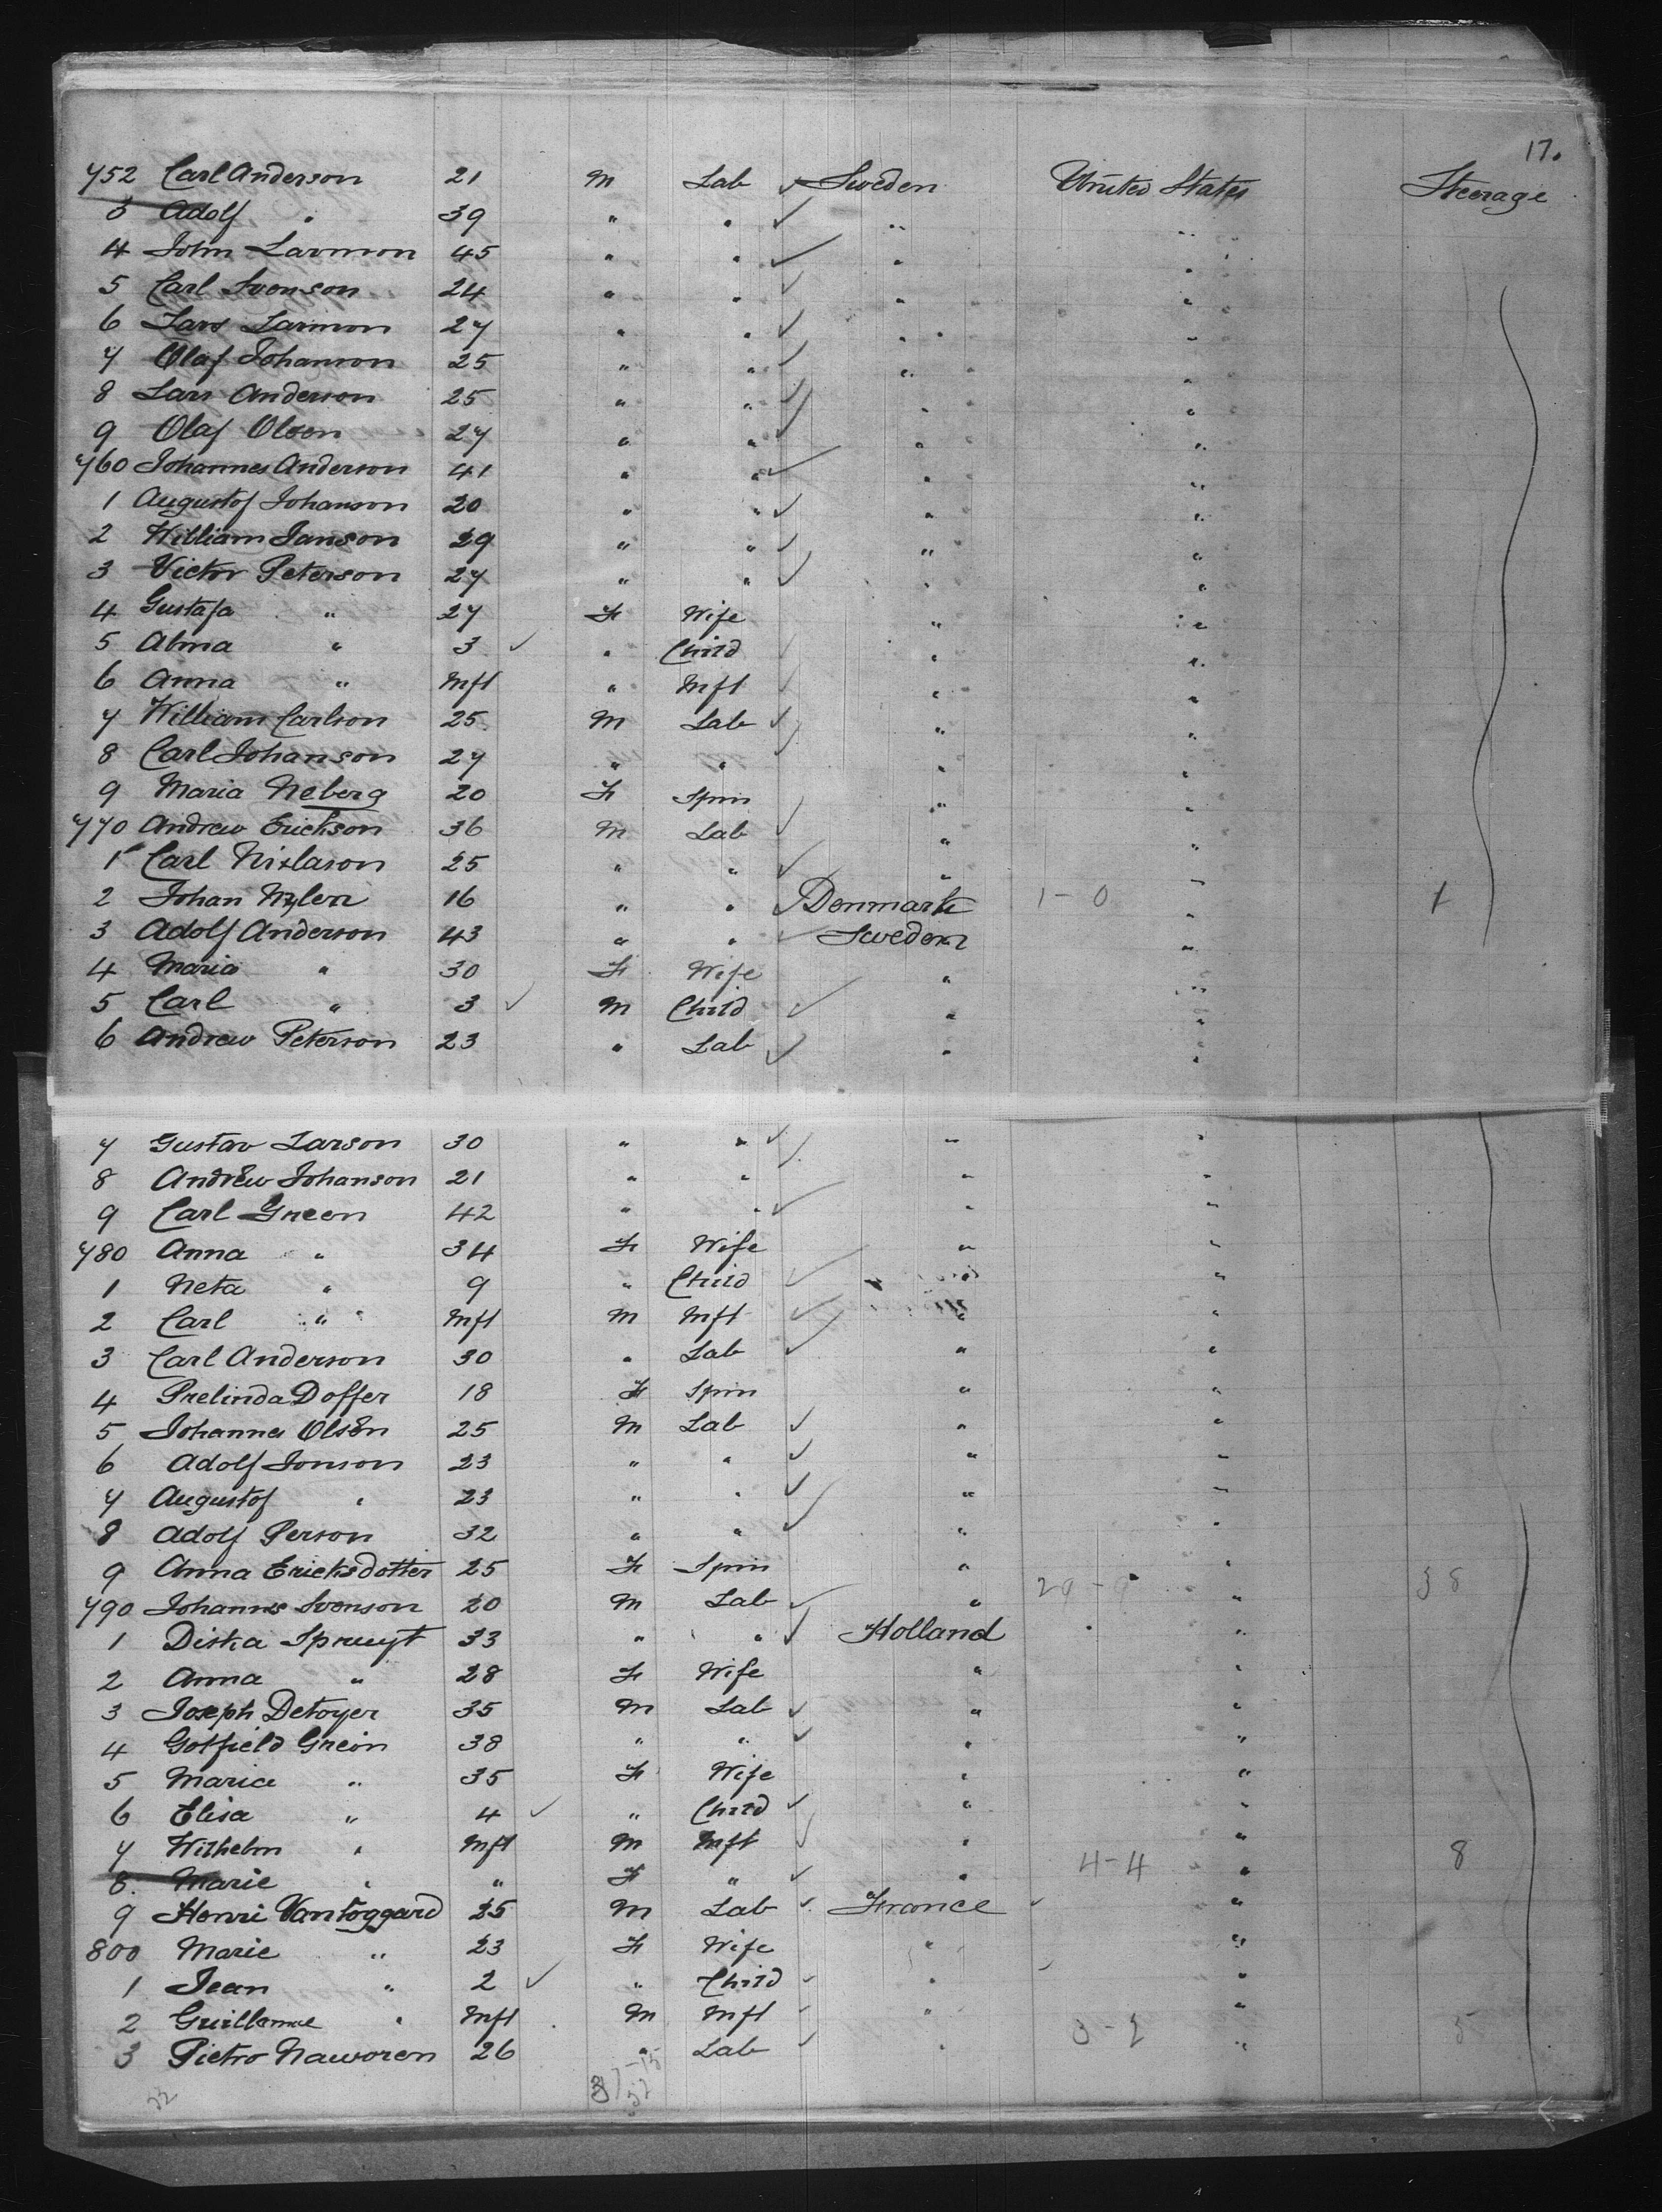 17.
752 Carl Anderson 21 M Lab Sweden United States Steerage
3 Adolf " 39 " " " "
4 John Larsson 45 " " " "
5 Carl Svenson 24 " " " "
6 Lars Larsson 27 " " " "
7 Olaf Johanson 25 " " " "
8 Lars Anderson 25 " " " "
9 Olaf Olsen 27 " " " "
760 Johannes Anderson 41 " " " "
1 Augustof Johanson 20 " " " "
2 William Janson 29 " " " "
3 Victor Peterson 27 " " " "
4 Gustafa " 27 F Wife " "
5 Alma " 3 " Child " "
6 Anna " Inft " Inft " "
7 William Carlson 25 M Lab " "
8 Carl Johanson 27 " " " "
9 Maria Neberg 20 F Spin " "
770 Andrew Erickson 36 M Lab " "
1 Carl Nixlason 25 " " " "
2 Johan Nylen 16 " " Denmark 1-0 " 1
3 Adolf Anderson 43 " " Sweden "
4 Maria " 30 F Wife " "
5 Carl " 3 M Child " "
6 Andrew Peterson 23 " Lab " "
7 Gustav Larson 30 " " " "
8 Andrew Johanson 21 " " " "
9 Carl Green 42 " " " "
780 Anna " 34 F Wife " "
1 Neta " 9 " Child " "
2 Carl " Inft M Inft " "
3 Carl Anderson 30 " Lab " "
4 Prelinda Doffer 18 F Spin " "
5 Johannes Olsen 25 M Lab " "
6 Adolf Jonson 23 " " " "
7 Augustof " 23 " " " "
8 Adolf Person 32 " " " "
9 Anna Ericksdotter 25 F Spin " "
790 Johannes Svenson 20 M Lab " " 38
1 Diska Spruyt 33 " " Holland "
2 Anna " 28 F Wife " "
3 Joseph Detoyer 35 M Lab " "
4 Gotfield Greion 38 " " " "
5 Maria " 35 F Wife " "
6 Elisa " 4 " Child " "
7 Wilhelm " Inft M Inft " "
8 Marie " " F " " 4-4 " 8
9 Henri Vantoggard 25 M Lab France "
800 Marie " 23 F Wife " "
1 Jean " 2 " Child " "
2 Guillamme " Inft M Inft " "
3 Pietro Naworen 26 " Lab " " 5